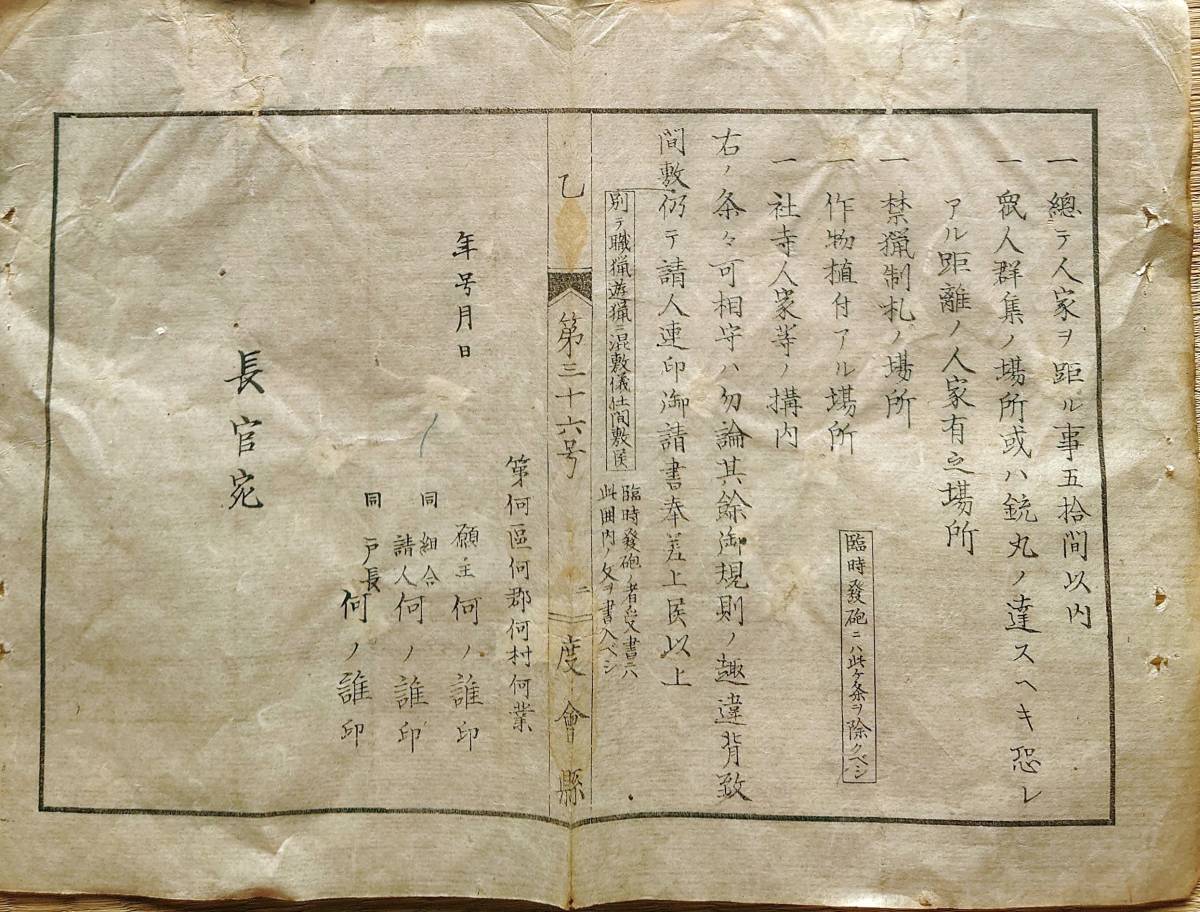 一 總テ人家ヲ距ル事五拾間以内
一 衆人群集ノ場所或ハ銃丸ノ達スヘキ恐レ
アル距離ノ人家有之場所
一 禁猟制札ノ場所
一 作物植付アル場所
臨時發砲ニハ此ヶ条ヲ除クベシ
一 社寺人家等ノ構内
右ノ条々可相守ハ勿論其餘御規則ノ趣違背致
間敷
別テ職猟遊猟ニ混敷儀仕間敷候
臨時發砲ノ者受書ニハ
此囲内ノ文ヲ書入ベシ
仍テ請人連印御請書奉差上候以上
乙 第三十六号 二 度會縣
第何區何郡何村何業
願主 何ノ誰印
同細合
請人 何ノ誰印
同 戸長 何ノ誰印
年号月日
長官宛